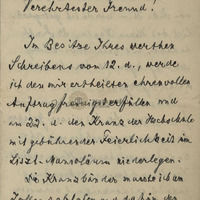 Verehrtester Freund!
Im Besitze Ihres werthen
Schreibens vom 12. d., werde
ich den mir ertheilten ehrenvollen
Auftrag freudigst erfüllen und
am 22. d. den Kranz der Hochschule
mit gebührender Feierlichkeit im
Liszt-Mausoläum niederlegen.
Die Kranzbänder erwarte ich am